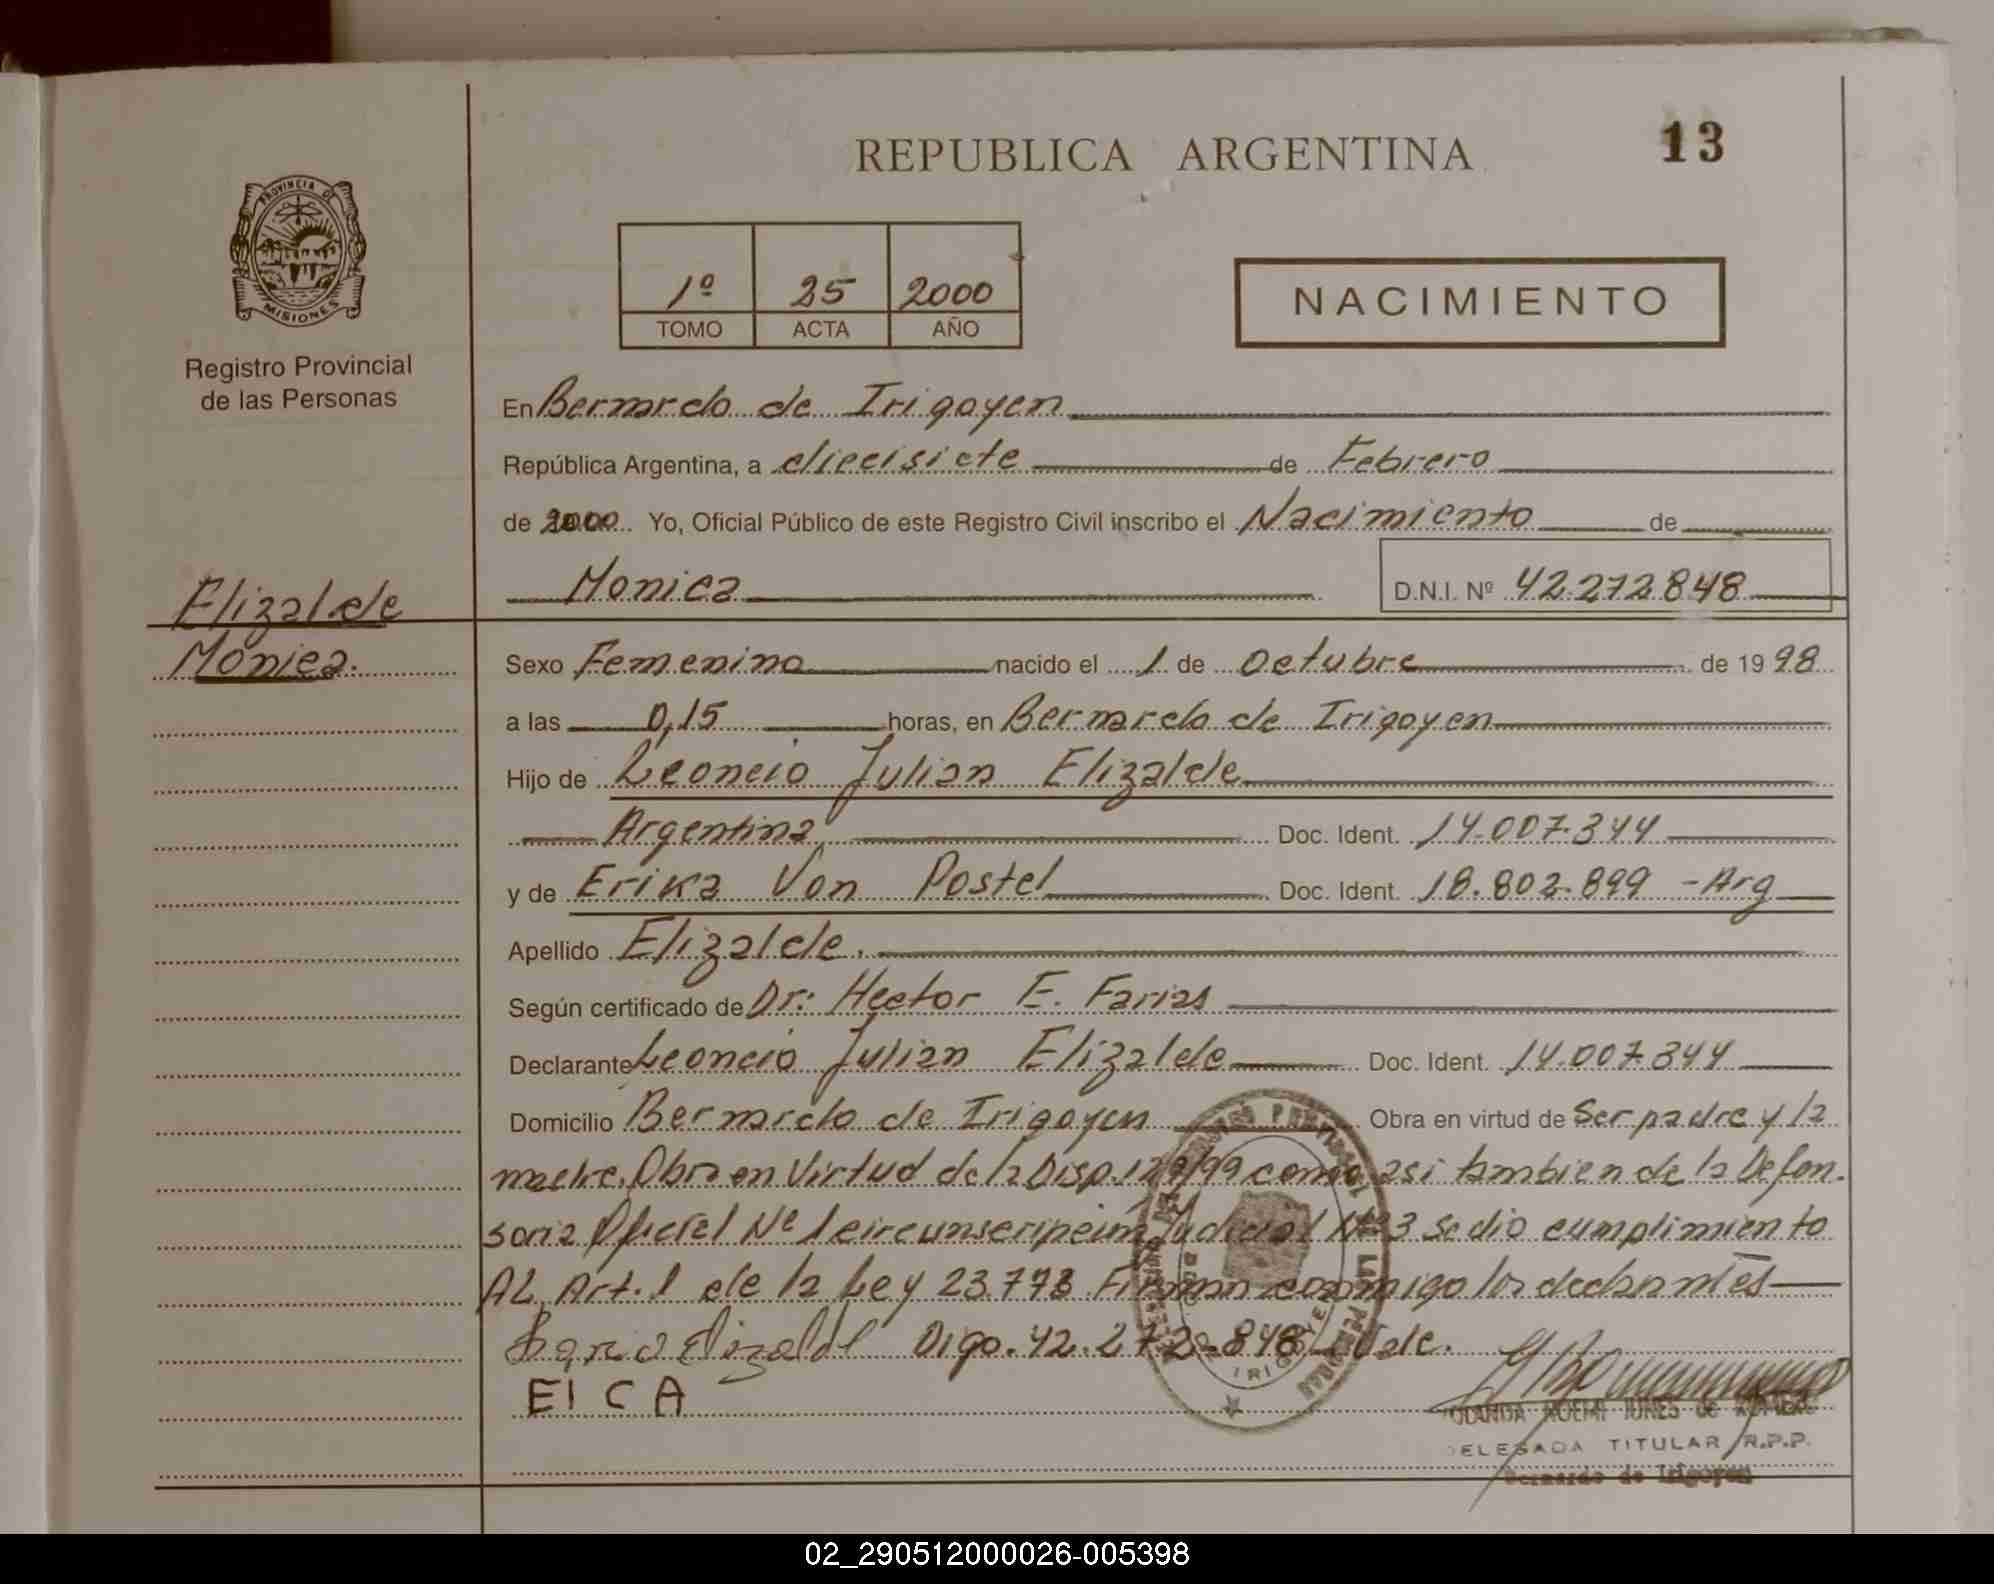 REPUBLICA ARGENTINA
13
PROVINCIA DE
MISIONES
Registro Provincial
de las Personas
1º 25 2000
TOMO ACTA AÑO
NACIMIENTO
En Bernardo de Irigoyen
República Argentina, a diecisiete de Febrero
de 2000 Yo, Oficial Público de este Registro Civil inscribo el Nacimiento de
Monica D.N.I. Nº 42.272848
Elizalde
Monica.
Sexo Femenino nacido el 1 de Octubre de 1998
a las 0,15 horas, en Bernardo de Irigoyen
Hijo de Leoncio Julian Elizalde
Argentina Doc. Ident. 14.007.344
y de Erika Von Postel Doc. Ident. 18.802.899 - Arg
Apellido Elizalde.
Según certificado de Dr: Hector E. Farias
Declarante Leoncio Julian Elizalde Doc. Ident. 14.007.344
Domicilio Bernardo de Irigoyen Obra en virtud de Ser padre y la
madre. Obra en Virtud de la Disp. 129/99 como asi tambien de la Defen-
soria Oficial Nº 1 circunscripcion Judicial Nº 3 se dio cumplimiento
AL Art. 1 de la Ley 23.776 Firman conmigo los declarantes
Elizalde Digo. 42.272.848 Vale.
EICA
YOLANDA NOEMI de
DELEGADA TITULAR R.P.P.
Bernardo de Irigoyen
02_290512000026-005398